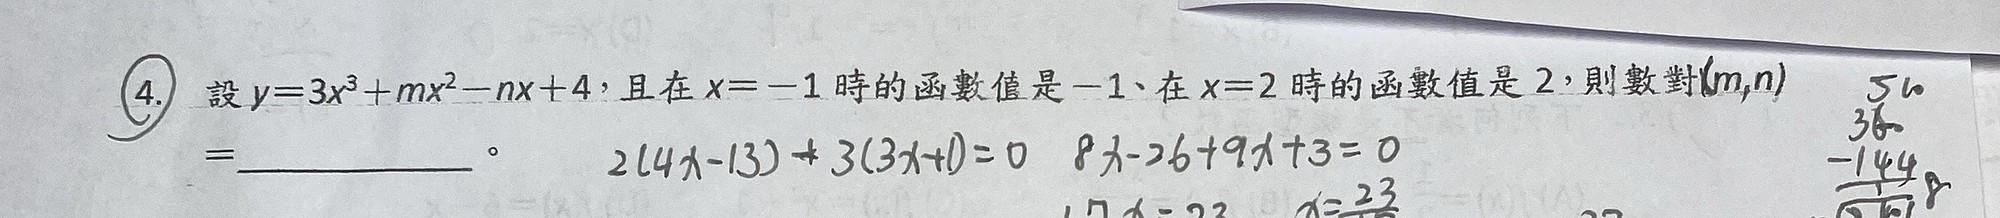 4. 設 y=3x³+mx²−nx+4，且在 x=−1 時的函數值是 −1、在 x=2 時的函數值是 2，則數對(m,n)
=＿＿＿＿＿＿。
2(4x-13)+3(3x+1)=0 8x-26+9x+3=0
17x=23 x=23
36
-144